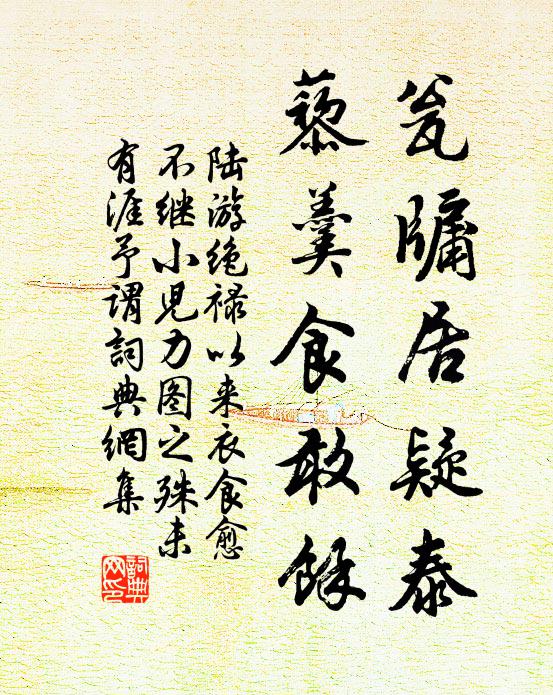 瓮牖居疑泰
藜羹食敢馀
陆游绝禄以来衣食愈
不继小儿力图之殊未
有涯予谓詞典網集
詞典
网印